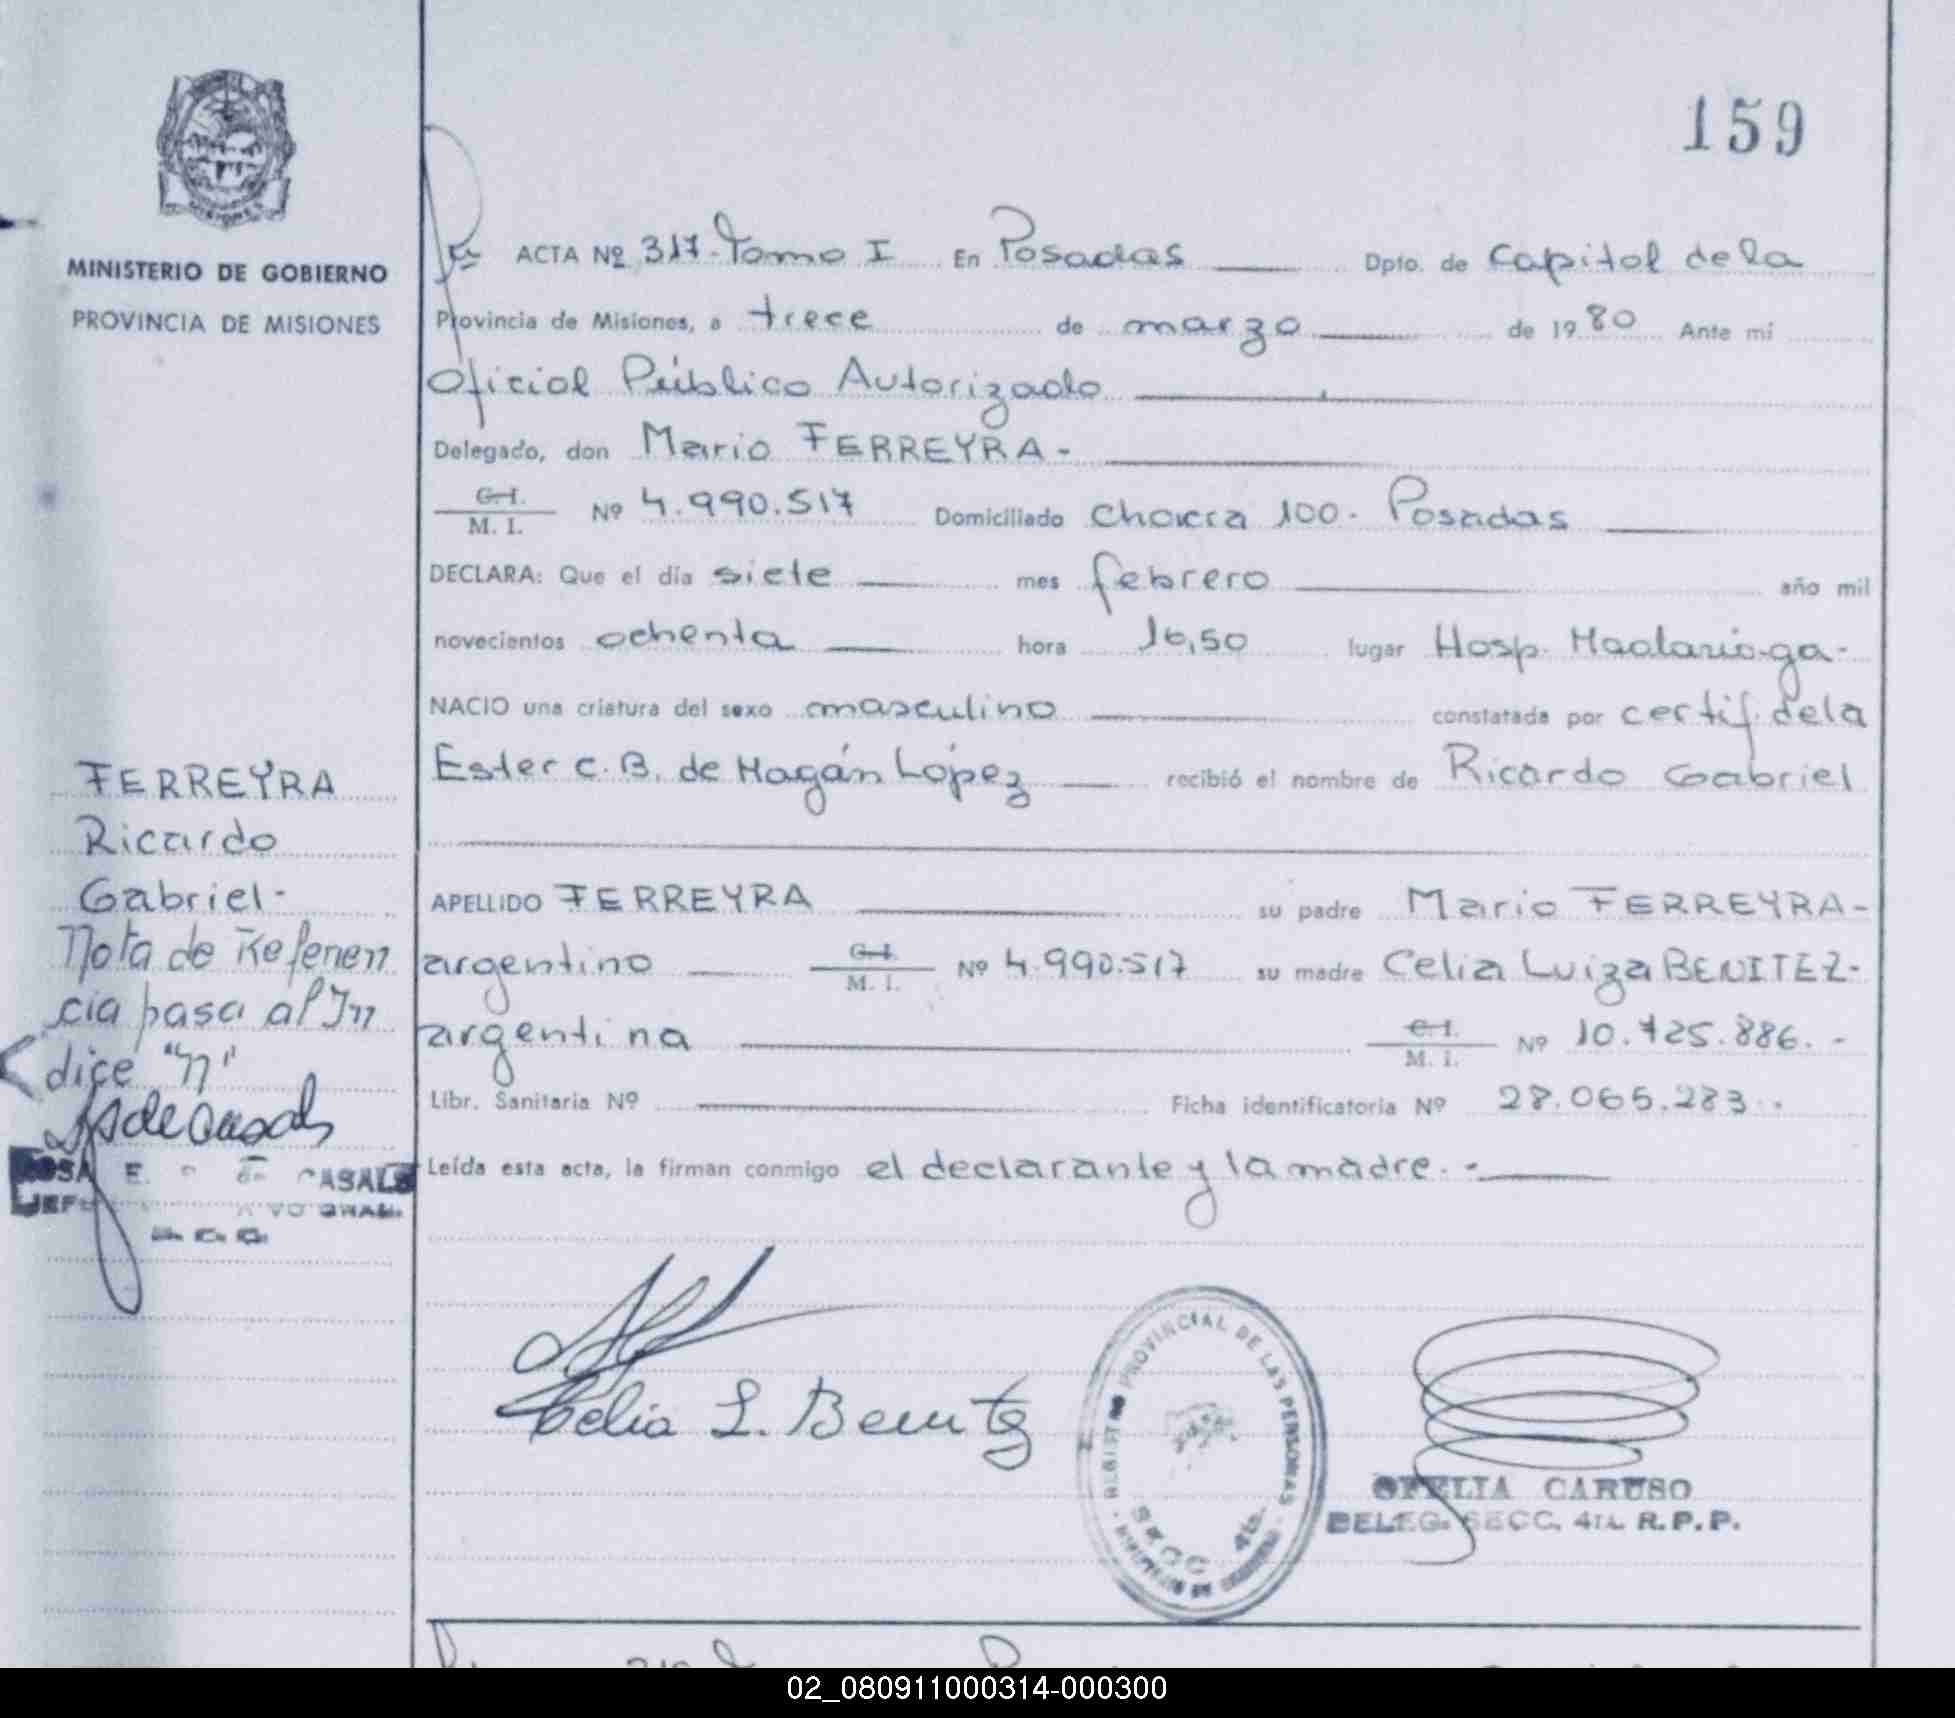 159
MINISTERIO DE GOBIERNO
PROVINCIA DE MISIONES
ACTA Nº 317-Tomo I En Posadas Dpto. de Capital de la
Provincia de Misiones, a trece de marzo de 1980 Ante mí
Oficial Público Autorizado
Delegado, don Mario FERREYRA-
C.I.
M. I. Nº 4.990.517 Domiciliado Chacra 100. Posadas
DECLARA: Que el día siete mes febrero año mil
novecientos ochenta hora 16,50 lugar Hosp. Madariaga-
NACIO una criatura del sexo masculino constatada por certif. de la
Ester C. B. de Magán López recibió el nombre de Ricardo Gabriel
APELLIDO FERREYRA su padre Mario FERREYRA-
argentino C.I.
M. I. Nº 4.990.517 su madre Celia Luiza BENITEZ-
argentina C.I.
M. I. Nº 10.725.886.-
Libr. Sanitaria Nº Ficha identificatoria Nº 28.065.283.-
Leída esta acta, la firman conmigo el declarante y la madre.-
FERREYRA
Ricardo
Gabriel-
Nota de Referen
cia pasa al In
dice "N"
E. de CASALS
JEF
Celia L. Benitez
REGISTRO PROVINCIAL DE LAS PERSONAS
SECC. 4ta.
MINISTERIO DE GOBIERNO
OFELIA CARUSO
DELEG. SECC. 4ta. R.P.P.
02_080911000314-000300